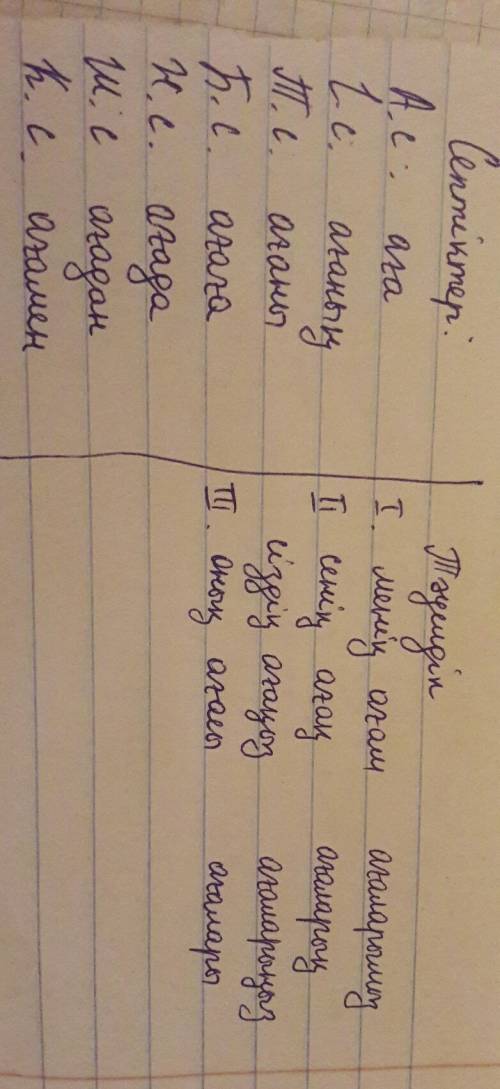 Септіктері.
А.с. аға
І.с. ағаның
Т.с. ағаны
Б.с. ағаға
Ж.с. ағада
Ш.с ағадан
К.с. ағамен
Тәуелдік
I. менің ағам ағаларымыз
II сенің ағаң ағаларың
сіздің ағаңыз ағаларыңыз
III. оның ағасы ағалары